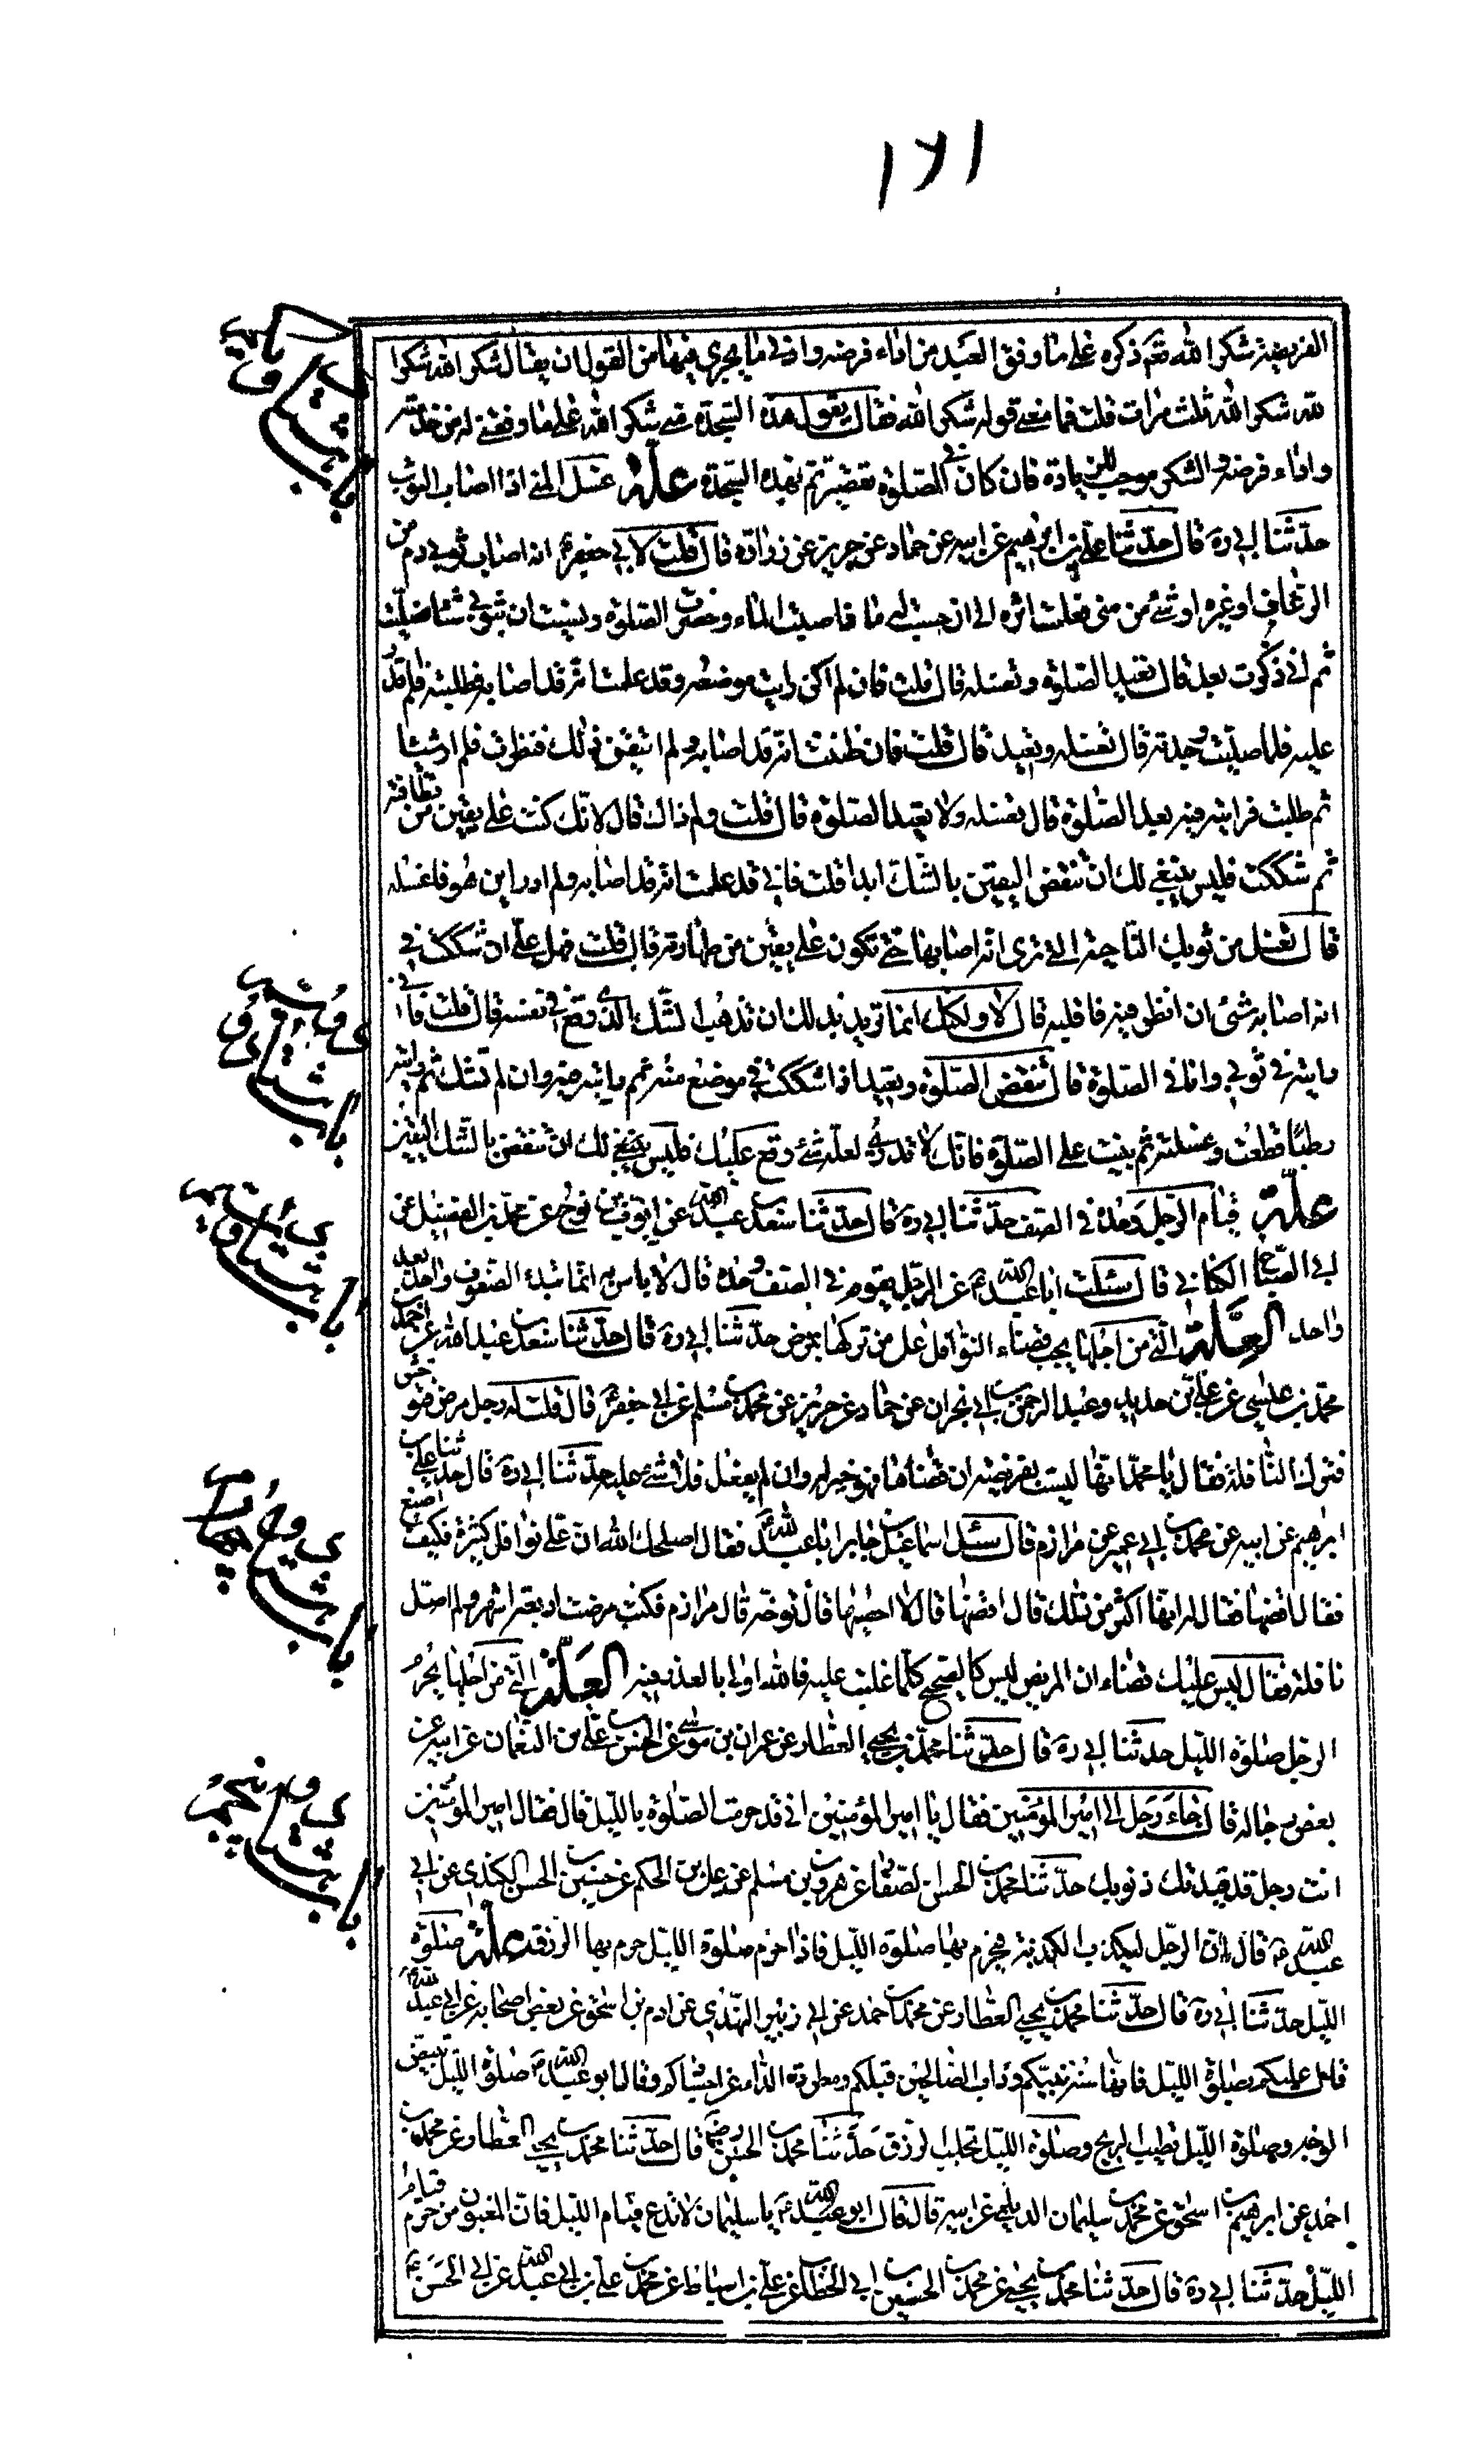 ١٦١
الفريضة شكرا لله تعم ذكره على ما وفق العبد من اداء فرضه وادنى ما يجرى فيها من القول ان يقال شكرا لله شكرا
لله شكرا لله ثلث مرات قلت فما معنى قوله شكرا لله فقال يقول هذه السجدة منى شكرا لله على ما وفقنى له من خدمته
واداء فرضه والشكر موجب للزيادة فان كان فى الصلوة تقصير تم بهذه السجدة علة غسل المنى اذا اصاب الثوب
حدثنا ابى ره قال حدثنا على بن ابراهيم عن ابيه عن حماد عن حريز عن زرارة قال قلت لابى جعفر ع انه اصاب ثوبى دم من
الرعاف او غيره او شئ من منى فعلمت اثره الى ان اصيب له ماء فاصبت الماء وحضرت الصلوة ونسيت ان بثوبى شيئا فصليت
ثم انى ذكرت بعد قال تعيد الصلوة وتغسله قال قلت فان لم اكن رايت موضعه وقد علمت انه قد اصابه فطلبته فلم اقدر
عليه فلما صليت وجدته قال تغسله وتعيد قال قلت فان ظننت انه قد اصابه ولم اتيقن ذلك فنظرت فلم ار شيئا
ثم طلبت فرايته فيه بعد الصلوة قال تغسله ولا تعيد الصلوة قال قلت ولم ذاك قال لانك كنت على يقين من نظافته
ثم شككت فليس ينبغى لك ان تنقض اليقين بالشك ابدا قلت فانى قد علمت انه قد اصابه ولم ادر اين هو فاغسله
قال تغسل من ثوبك الناحية التى ترى انه اصابها حتى تكون على يقين من طهارته قال قلت فهل على ان شككت فى
انه اصابه شئ ان انظر فيه فاقلبه قال لا ولكنك انما تريد بذلك ان تذهب الشك الذى وقع فى نفسه قال قلت فانى
رايته فى ثوبى وانا فى الصلوة قال تنقض الصلوة وتعيد اذا شككت فى موضع منه ثم رايته فيه وان لم تشك ثم رايته
رطبا قطعت وغسلته ثم بنيت على الصلوة فانك لا تدرى لعله شئ وقع عليك فليس ينبغى لك ان تنقض بالشك اليقين
علة قيام الرجل وحده فى الصف حدثنا ابى ره قال حدثنا سعد بن عبد الله عن ايوب بن نوح عن محمد بن الفضيل عن
ابى الصباح الكنانى قال سئلت ابا عبد الله ع عن الرجل يقوم فى الصف وحده قال لا باس به انما تبدء الصفوف واحد بعد
واحد العلة التى من اجلها يجب قضاء النوافل على من تركها بمرض حدثنا ابى ره قال حدثنا سعد بن عبد الله عن احمد بن
محمد بن عيسى عن على بن حديد وعبد الرحمن بن ابى نجران عن حماد عن حريز عن محمد بن مسلم عن ابى جعفر ع قال قلت له رجل مرض فتوحش
فترك النافلة فقال يا محمد انها ليست بفريضة ان قضاها فهو خير له وان لم يفعل فلا شئ عليه حدثنا ابى ره قال حدثنا على بن
ابرهيم عن ابيه عن محمد بن ابى عمير عن مرازم قال سئل اسماعيل بن جابر ابا عبد الله ع فقال اصلحك الله ان على نوافل كثيرة فكيف اصنع
فقال اقضها فقال له انها اكثر من ذلك قال اقضها قال لا احصيها قال توخه قال مرازم فكنت مرضت اربعة اشهر ولم اصل
نافلة فقال ليس عليك قضاء ان المريض ليس كالصحيح كلما غلب عليه فالله اولى بالعذر فيه العلة التى من اجلها يحرم
الرجل صلوة الليل حدثنا ابى ره قال حدثنا محمد بن يحيى العطار عن عمران بن موسى عن الحسن بن على بن النعمان عن ابيه عن
بعض رجاله قال جاء رجل الى امير المؤمنين فقال يا امير المؤمنين انى قد حرمت الصلوة بالليل قال فقال امير المؤمنين
انت رجل قد قيدتك ذنوبك حدثنا محمد بن الحسن الصفار عن هرون بن مسلم عن على بن الحكم عن حسين بن الحسن الكندى عن ابى
عبد الله ع قال ان الرجل ليكذب الكذبة فيحرم بها صلوة الليل فاذا حرم صلوة الليل حرم بها الرزق علة صلوة
الليل حدثنا ابى ره قال حدثنا محمد بن يحيى العطار عن محمد بن احمد عن ابى زهير النهدى عن ادم بن اسحق عن بعض اصحابه عن ابى عبد الله ع
قال عليكم بصلوة الليل فانها سنة نبيكم وداب الصالحين قبلكم ومطردة الداء عن اجسادكم وقال ابو عبد الله ع صلوة الليل تبيض
الوجه وصلوة الليل تطيب الريح وصلوة الليل تجلب الرزق حدثنا محمد بن الحسن رضه قال حدثنا محمد بن يحيى العطار عن محمد بن
احمد عن ابرهيم بن اسحق عن محمد بن سليمان الديلمى عن ابيه قال قال ابو عبد الله ع يا سليمان لا تدع قيام الليل فان المغبون من حرم قيام
الليل حدثنا ابى ره قال حدثنا محمد بن يحيى عن محمد بن الحسين بن ابى الخطاب عن على بن اسباط عن محمد بن على بن ابى عبد الله عن ابى الحسن ع
باب هشتاد و
باب هشتاد و
باب هشتاد و
باب هشتاد و
باب هشتاد و پنجم